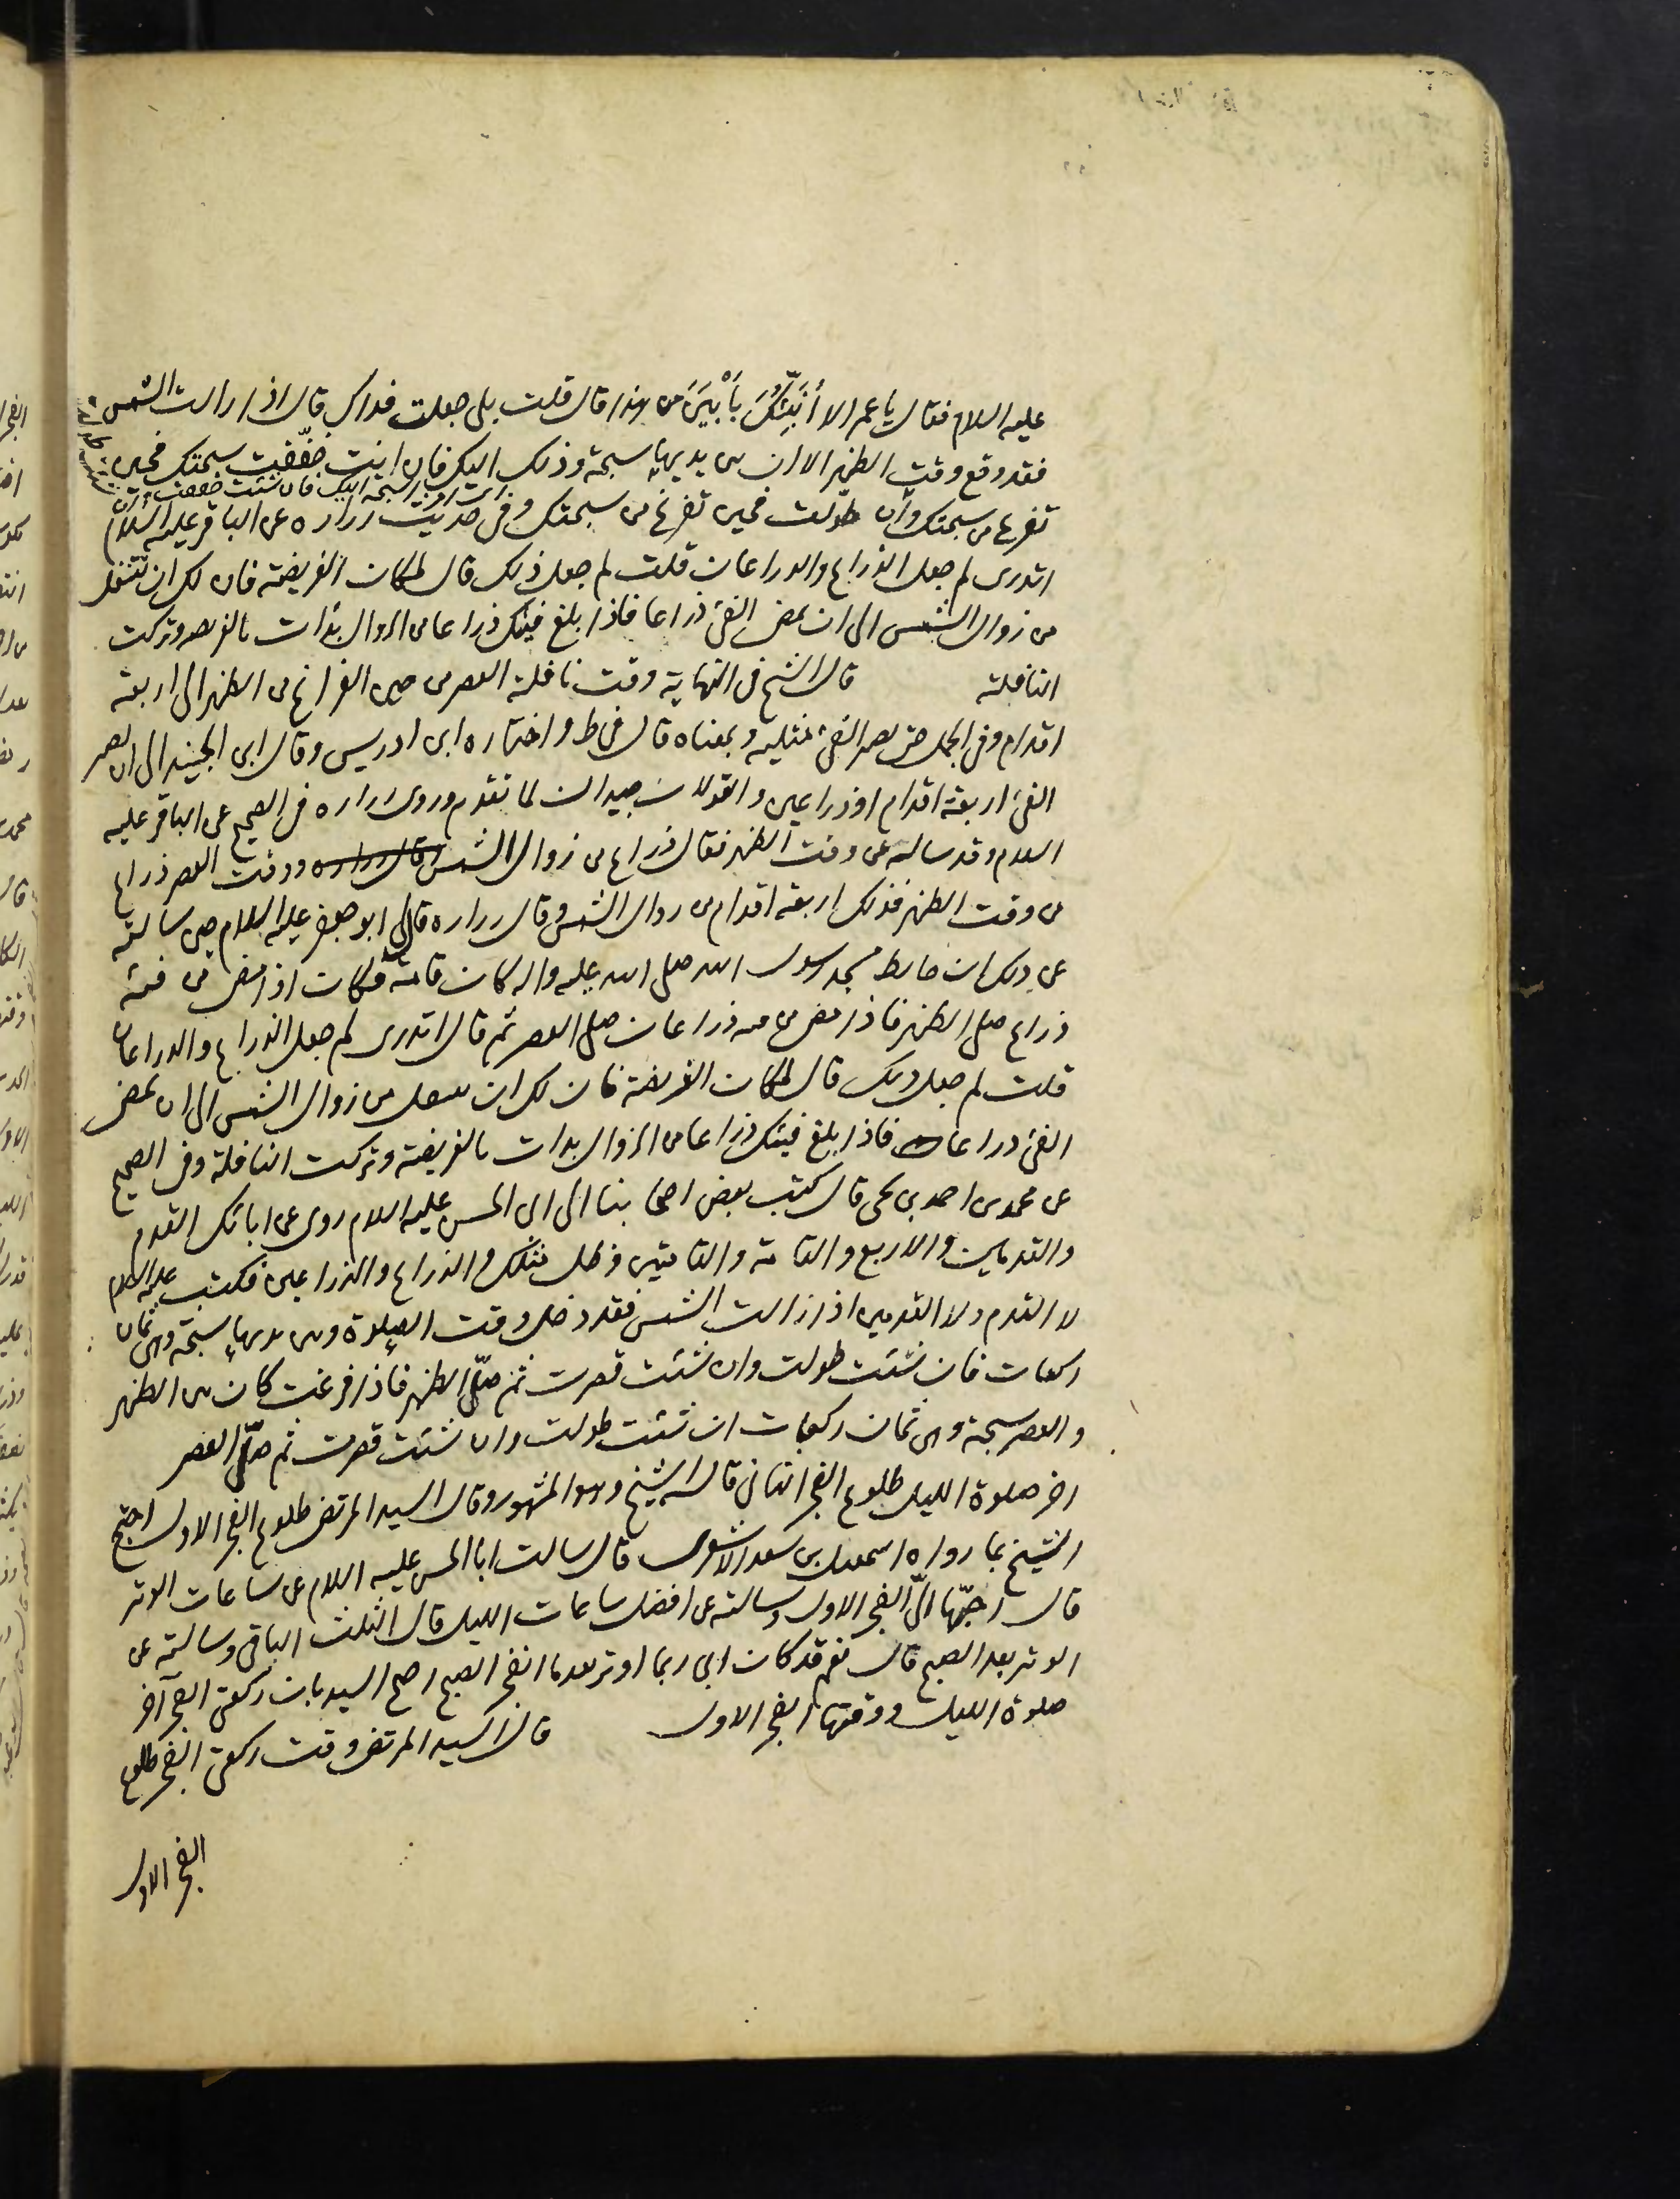 عليه السلام فقال يا عمر الا أُنَبِّئُكَ بِأَبْيَنَ من هذا قال قلت بلى جعلت فداك قال اذا زالت الشمس
فقد وقع وقت الظهر الا ان بين يديها سبحة وذلك اليك فان انت خفّفت سبحتك فحين
تفرغ من سبحتك وان طوّلت فحين تفرغ من سبحتك وفى حديث زراره عن الباقر عليه السلام
اتدرى لم جعل الذراع والذراعان قلت لم جعل ذلك قال لمكان الفريضة فان لك ان تتنفل
من زوال الشمس الى ان يمضى الفئ ذراعا فاذا بلغ فيئك ذراعا من الزوال بدأت بالفريضه وتركت
النافلة قال الشيخ فى النهاية وقت نافلة العصر من حين الفراغ من الظهر الى اربعة
اقدام وفى الجمل حتى يصير الفئ مثليه وبمعناه قال فى ط واختاره ابن ادريس وقال ابن الجنيد الى ان يصير
الفئ اربعة اقدام او ذراعين والقولان جيدان لما تقدم وروى زراره فى الصحيح عن الباقر عليه
السلام وقد ساله عن وقت الظهر فقال ذراع من زوال الشمس ووقت العصر ذراع
من وقت الظهر فذلك اربعة اقدام من زوال الشمس وقال زراره قال لى ابو جعفر عليه السلام حين سالته
عن ذلك ان حايط مسجد رسول الله صلى الله عليه واله كان قامة فكان اذا مضى من فيئه
ذراع صلى الظهر فاذا مضى من فيئه ذراعان صلى العصر ثم قال اتدرى لم جعل الذراع والذراعان
قلت لم جعل ذلك قال لمكان الفريضة فان لك ان تتنفل من زوال الشمس الى ان يمضى
الفئ ذراعا فاذا بلغ فيئك ذراعا من الزوال بدات بالفريضة وتركت النافلة وفى الصحيح
عن محمد بن احمد بن يحيى قال كتب بعض اصحابنا الى ابى الحسن عليه السلام روى عن ابائك القدم
والقدمين والاربع والقامة والقامتين وظل مثلك والذراع والذراعين فكتب عليه السلام
لا القدم ولا القدمين اذا زالت الشمس فقد دخل وقت الصلوة وبين يديها سبحة وهى ثمان
ركعات فان شئت طولت وان شئت قصرت ثم صلّ الظهر فاذا فرغت كان بين الظهر
والعصر سبحة وهى ثمان ركعات ان شئت طولت وان شئت قصرت ثم صلّ العصر
اخر صلوة الليل طلوع الفجر الثانى قاله الشيخ وهو المشهور وقال السيد المرتضى طلوع الفجر الاول احتج
الشيخ بما رواه اسمعيل بن سعد الاشعرى قال سالت ابا الحسن عليه السلام عن ساعات الوتر
قال احبّها الىّ الفجر الاول وسالته عن افضل ساعات الليل قال الثلث الباقى وسالته عن
الوتر بعد الصبح قال نعم قد كان ابى ربما اوتر بعد ما انفجر الصبح احتج السيد بان ركعتى الفجر آخر
صلوة الليل ووقتها الفجر الاول قال السيد المرتضى وقت ركعتى الفجر طلوع
الفجر الاول